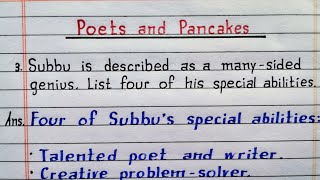 Poets and Pancakes
3. Subbu is described as a many-sided
genius. List four of his special abilities.
Ans. Four of Subbu's special abilities:
• Talented poet and writer.
• Creative problem-solver.